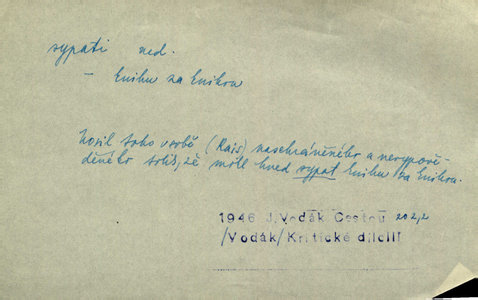 sypati ned.
– knihu za knihou
Nosil toho v sobě (Rais) naschráněného a nevypově-
děného tolik, že mohl hned sypat knihu za knihou.
1946 J. Vodák Cestou 202,2
/Vodák/Kritické dílo III